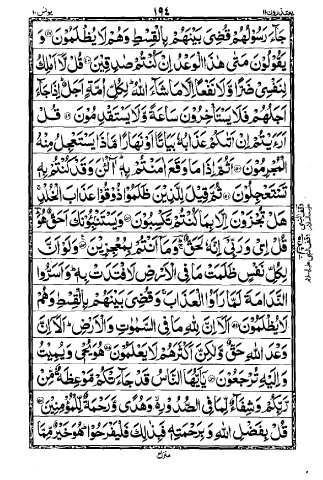 یعتذرون ۱۱ ۱۹٤ یونس ۱۰
جَآءَ رَسُوْلُهُمْ قُضِيَ بَيْنَهُمْ بِالْقِسْطِ وَهُمْ لَا يُظْلَمُوْنَ وَ
يَقُوْلُوْنَ مَتٰى هٰذَا الْوَعْدُ اِنْ كُنْتُمْ صٰدِقِيْنَ قُلْ لَّآ اَمْلِكُ
لِنَفْسِيْ ضَرًّا وَّلَا نَفْعًا اِلَّا مَا شَآءَ اللّٰهُ لِكُلِّ اُمَّةٍ اَجَلٌ اِذَا جَآءَ
اَجَلُهُمْ فَلَا يَسْتَاْخِرُوْنَ سَاعَةً وَّلَا يَسْتَقْدِمُوْنَ قُلْ
اَرَءَيْتُمْ اِنْ اَتٰىكُمْ عَذَابُهٗ بَيَاتًا اَوْ نَهَارًا مَّاذَا يَسْتَعْجِلُ مِنْهُ
الْمُجْرِمُوْنَ اَثُمَّ اِذَا مَا وَقَعَ اٰمَنْتُمْ بِهٖ آٰلْـٰٔنَ وَقَدْ كُنْتُمْ بِهٖ
تَسْتَعْجِلُوْنَ ثُمَّ قِيْلَ لِلَّذِيْنَ ظَلَمُوْا ذُوْقُوْا عَذَابَ الْخُلْدِ
هَلْ تُجْزَوْنَ اِلَّا بِمَا كُنْتُمْ تَكْسِبُوْنَ وَيَسْتَنْۢبِـُٔوْنَكَ اَحَقٌّ هُوَ
قُلْ اِيْ وَرَبِّيْٓ اِنَّهٗ لَحَقٌّ وَمَآ اَنْتُمْ بِمُعْجِزِيْنَ وَلَوْ اَنَّ
لِكُلِّ نَفْسٍ ظَلَمَتْ مَا فِي الْاَرْضِ لَافْتَدَتْ بِهٖ وَاَسَرُّوا
النَّدَامَةَ لَمَّا رَاَوُا الْعَذَابَ وَقُضِيَ بَيْنَهُمْ بِالْقِسْطِ وَهُمْ
لَا يُظْلَمُوْنَ اَلَآ اِنَّ لِلّٰهِ مَا فِي السَّمٰوٰتِ وَالْاَرْضِ اَلَآ اِنَّ
وَعْدَ اللّٰهِ حَقٌّ وَّلٰكِنَّ اَكْثَرَهُمْ لَا يَعْلَمُوْنَ هُوَ يُحْيٖ وَيُمِيْتُ
وَاِلَيْهِ تُرْجَعُوْنَ يٰٓاَيُّهَا النَّاسُ قَدْ جَآءَتْكُمْ مَّوْعِظَةٌ مِّنْ
رَّبِّكُمْ وَشِفَآءٌ لِّمَا فِي الصُّدُوْرِ وَهُدًى وَّرَحْمَةٌ لِّلْمُؤْمِنِيْنَ
قُلْ بِفَضْلِ اللّٰهِ وَبِرَحْمَتِهٖ فَبِذٰلِكَ فَلْيَفْرَحُوْا هُوَ خَيْرٌ مِّمَّا
منزل